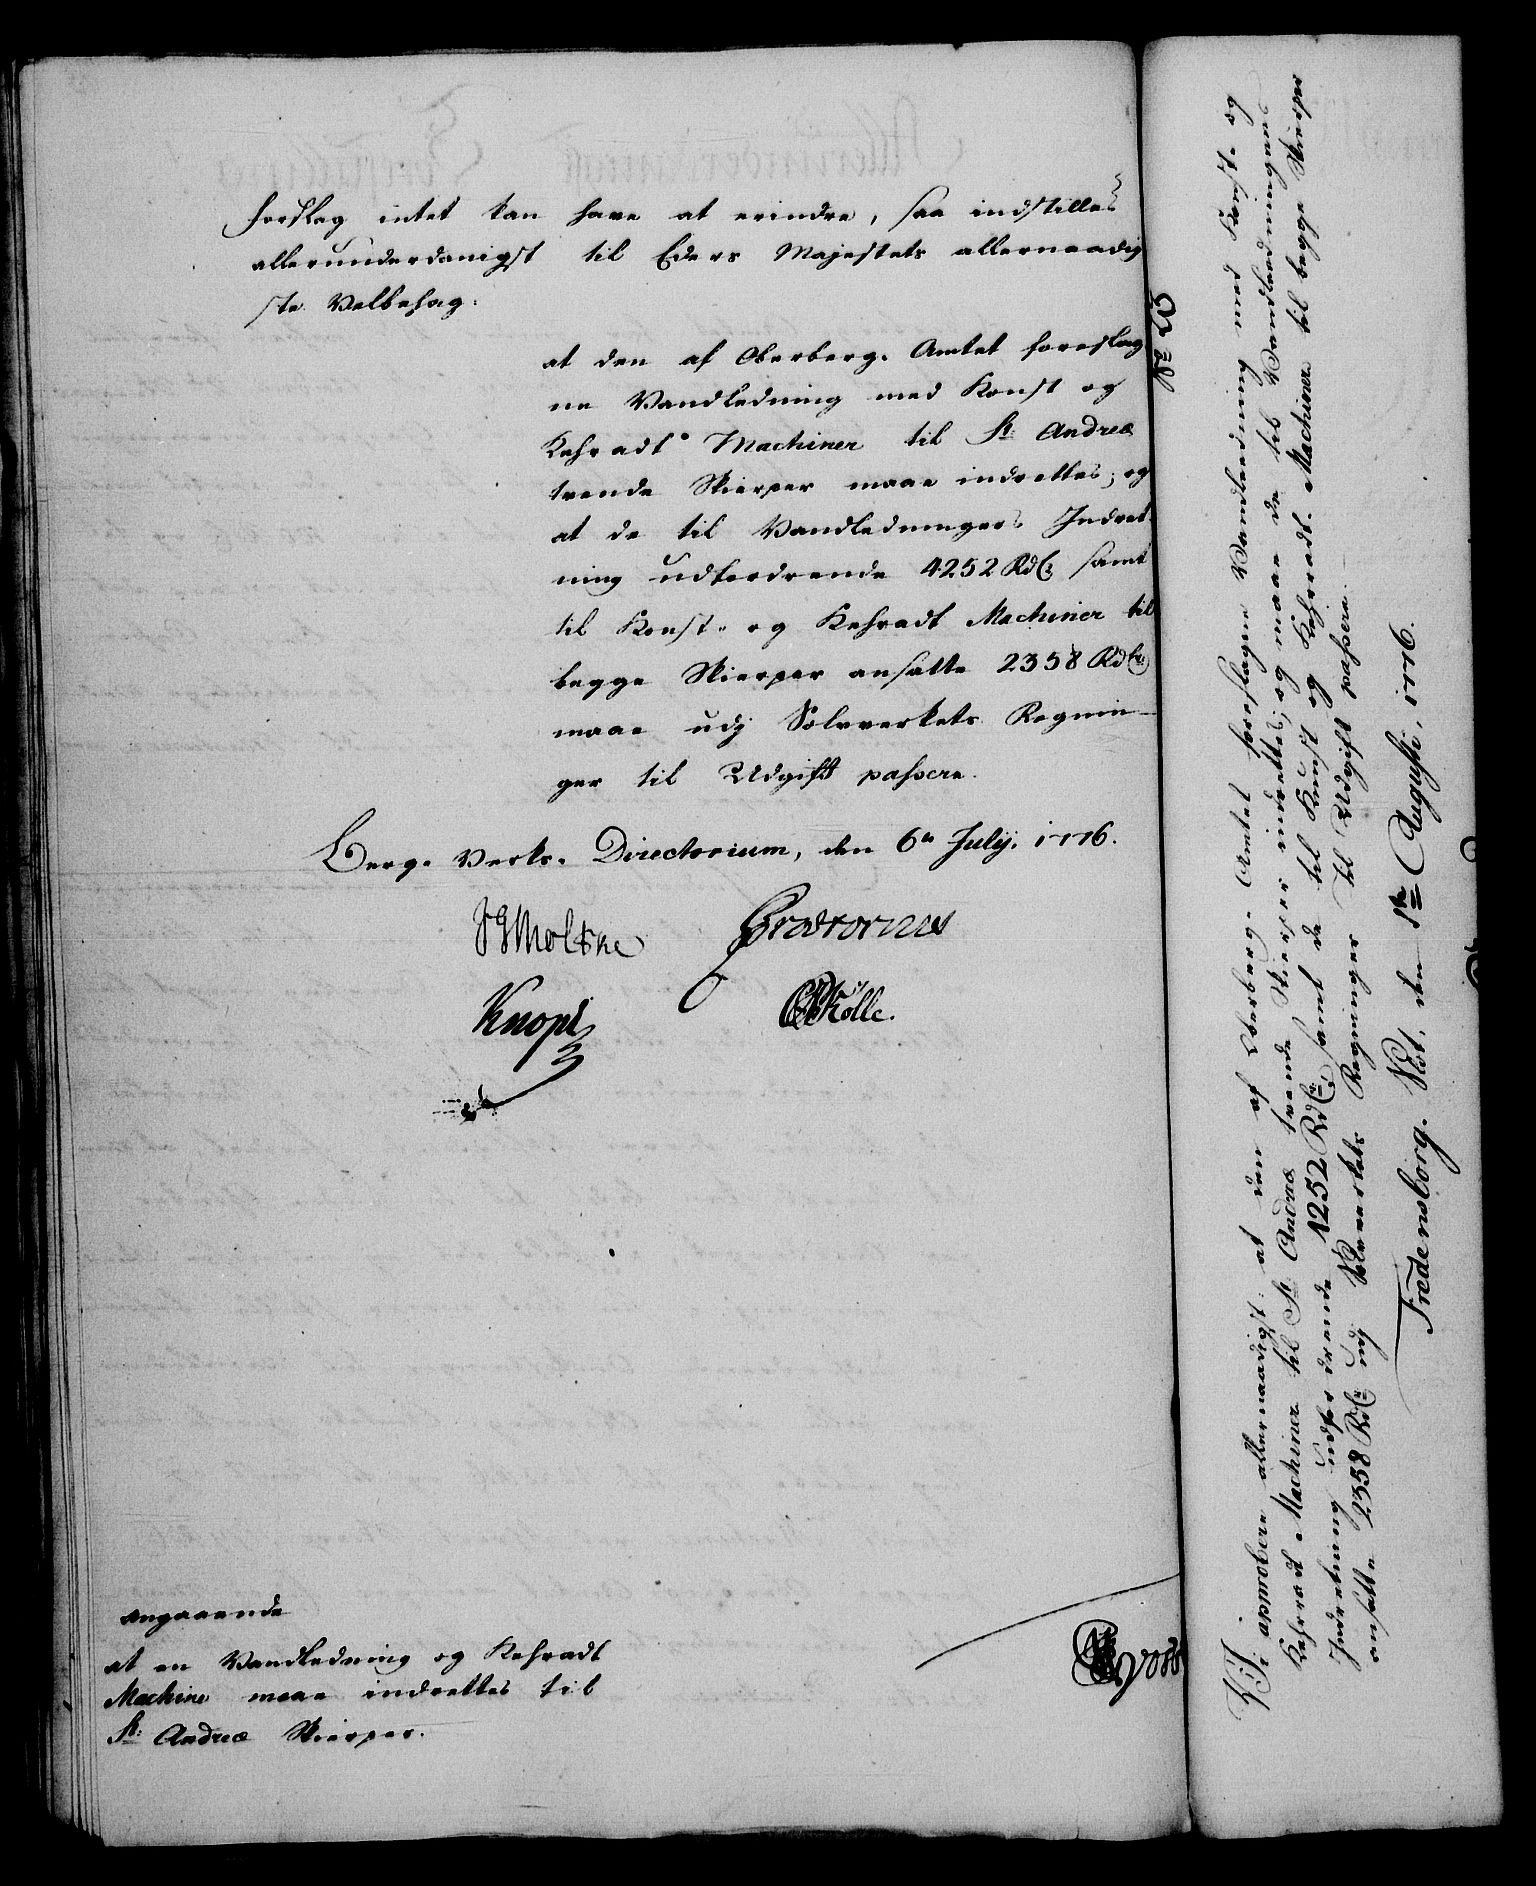 forslag intet kan have at erindre, saa indstilles
allerunderdanigst til Eders Majestets allernaadig
ste Velbehag:
at den af Oberberg-Amtet foreslag
ne Vandledning med Konst og
Kehradt Machiner til St: Andreæ
tvende Skierper maae indrettes, og
at de til Vandledningens Indret-
ning udfordrende 4252 Rdlr samt
til Konst- og Kehradt Machiner til
begge Skierper ansatte 2358 Rdlr
maae udj Sølvverkets Regnin-
ger til Udgift passere.
Berg-Verks-Directorium, den 6te July. 1776.
Moltke Prætorius
Knoph Kölle.
angaaende
at en Vandledning og Kehradt
Machine maae indrettes til
St: Andreæ Skierper.
No 23
Vi approbere allernaadigst: at den af Oberberg-Amtet foreslagne Vandledning med Konst- og
Kehradt Machiner til St: Andreæ tvende Skierper indrettes, og maae de til Vandledningens
Indretning udfordrende 4252 Rdlr, samt de til Kunst og Kehradt-Machiner til begge Skierper
ansatte 2358 Rdlr udj Sølvverkets Regninger til Udgift passere.
Fredensborg-Slot, den 1te Augusti, 1776.